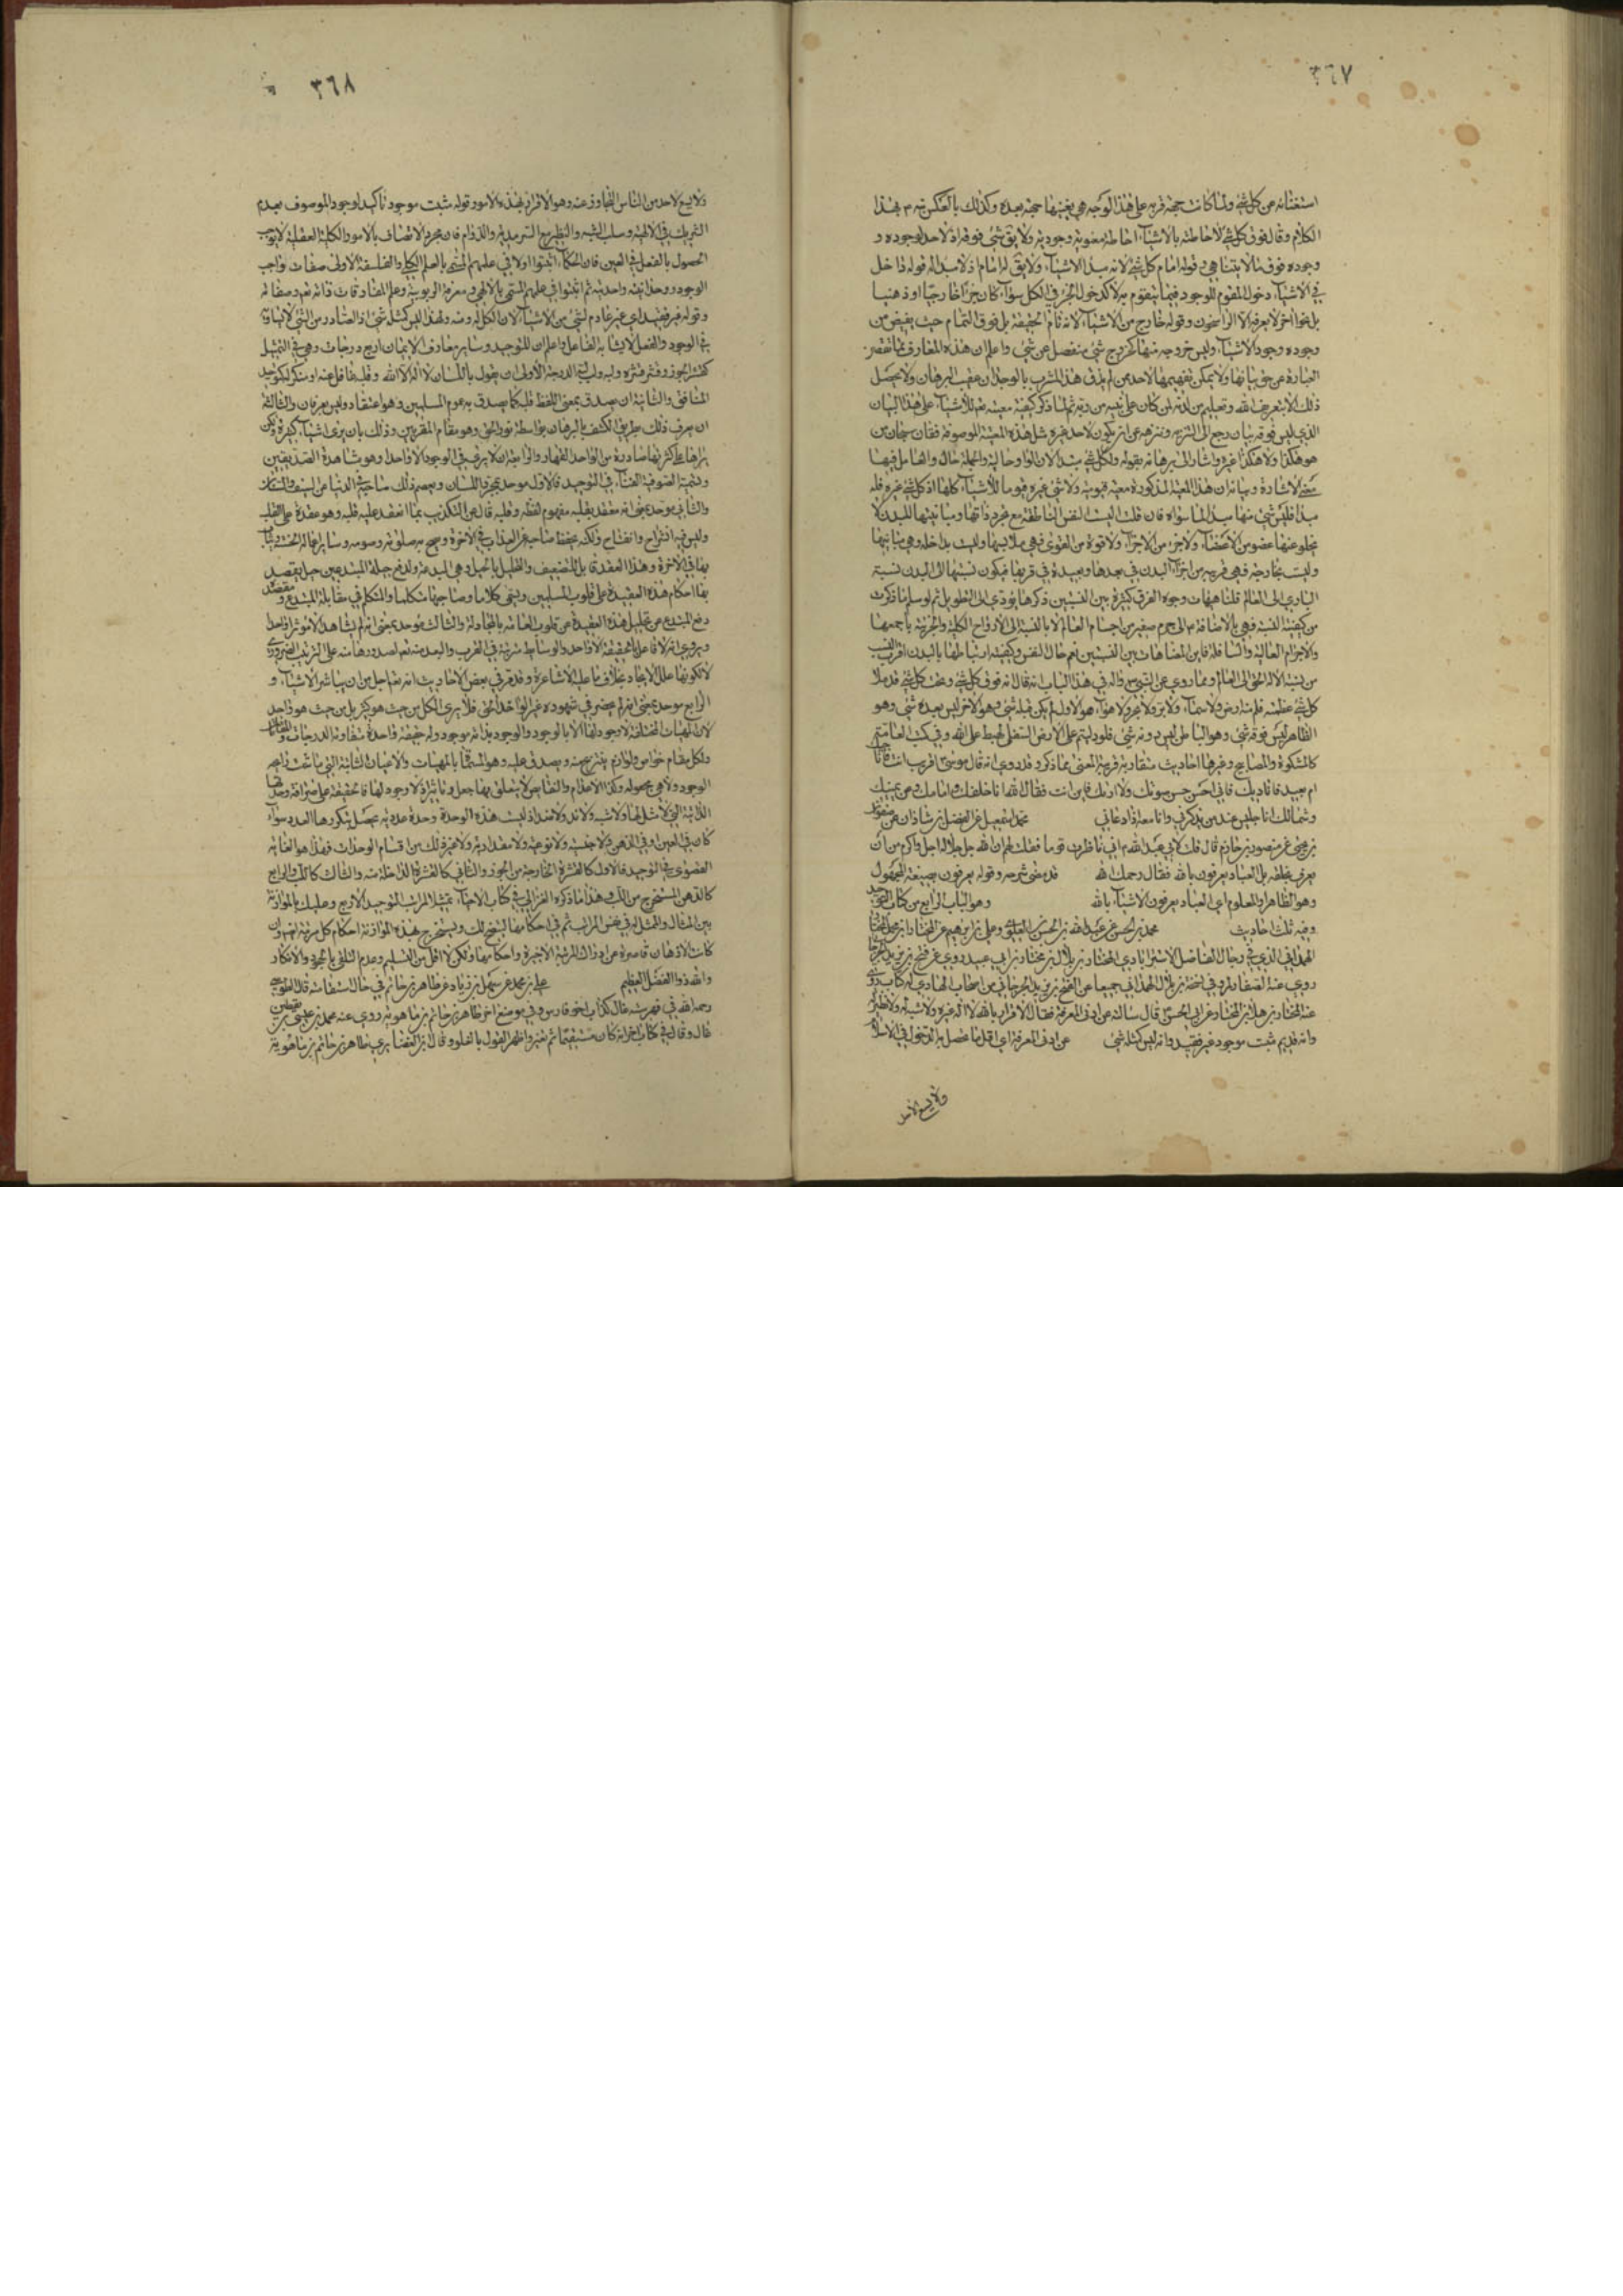 ٣٦٧
استغنائه عن كل شئ ولما كانت جهة قربه على هذا الوجه هي بعينها جهة بعده وكذلك بالعكس نبه م بهذا
الكلام وقال فوق كل شئ لاحاطته بالاشياء احاطة معنوية وجودية ولا يق شئ فوقه اذ لا حد لوجوده و
وجوده فوق ما لا يتناهى وقوله امام كل شئ لانه مبدا الاشياء ولا يق له امام اذ لا مبدا له قوله داخل
في الاشياء دخول المقوم للوجود فيما يتقوم به لا كدخول الجزء في الكل سواء كان جزءا خارجيا او ذهنيا
بل نحوا اخر لا يعرفه الا الراسخون وقوله خارج من الاشياء لانه تام الحقيقة بل فوق التمام حيث يفيض من
وجوده وجود الاشياء وليس خروجه منها كخروج شئ منفصل عن شئ واعلم ان هذه المعارف مما تقصر
العبارة عن حق بيانها ولا يمكن تفهيمها لاحد من لم يذق هذا المشرب بالوجدان عقيب البرهان ولا يحصل
ذلك الا بتعريف الله وتعليم من لدنه لمن كان على بينة من ربه ثم لما ذكر كيفية معيته تع للاشياء على هذا البيان
الذي ليس فوقه بيان رجع الى التنزيه ونزهه عن ان يكون لاحد غيره مثل هذه المعية الموصوفة فقال سبحان من
هو هكذا ولا هكذا غيره واشار الى برهانه بقوله ولكل شئ مبتدا
ان هذه المعية المذكورة معية قيومية ولا شئ غيره قيوما للاشياء كلها اذ كل شئ غيره فله
مبدا فليس شئ منها مبدا لما سواه فان قلت اليست النفس الناطقة مع تجرد ذاتها ومباينتها للبدن لا
يخلو عنها عضو من الاعضاء ولا جزء من الاجزاء ولا قوة من القوى فهي ملابسها وليست بداخله وهي مباينها
وليست بخارجه فهي قريبه من اجزاء البدن في بعدها وبعيدة في قربها فيكون نسبتها الى البدن نسبة
الباري الى العالم قلنا هيهات وجوه الفرق كثيرة بين النسبتين ذكرها يؤدي الى التطويل ثم لو سلم ما ذكرت
من كيفية النسبة فهي بالاضافة الى جرم صغير من اجسام العالم لا بالنسبة الى الارواح الكلية والجزئية باجمعها
والاجرام العالية والسافلة فاين المضاهات بين النسبتين نعم حال النفس وكيفية ارتباطها بالبدن اقرب النسب
من نسبة الاله الحق الى العالم ومما روي عن النبي ص واله في هذا الباب انه قال انه فوق كل شئ وتحت كل شئ قد ملا
كل شئ عظمته فلم منه ارض ولا سماء ولا بر ولا بحر ولا هواء هو الاول لم يكن قبله شئ وهو الاخر ليس بعده شئ وهو
الظاهر ليس فوقه شئ وهو الباطن ليس دونه شئ فلو دليتم على الارض السفلى لهبط على الله وفي كتب العامة
كالمشكوة والمصابيح وغيرها احاديث متقاربة قريبة المعنى مما ذكر وقد روي انه قال موسى ع اقريب انت فاناجيك
ام بعيد فاناديك فاني احس حسن صوتك ولا اراك فاين انت فقال الله انا خلفك وامامك وعن يمينك
وشمالك انا جليس عند من يذكرني وانا معه اذا دعاني محمد بن اسمعيل عن الفضل بن شاذان عن صفوان
بن يحيى عن منصور بن حازم قال قلت لابي عبد الله ع اني ناظرت قوما فقلت لهم ان الله جل جلاله اجل واكرم من ان
يعرف بخلقه بل العباد يعرفون بالله فقال رحمك الله قد مضى شرحه وقوله يعرفون بصيغة المجهول
وهو الظاهر والمعلوم اي العباد يعرفون الاشياء بالله وهو الباب الرابع من كتاب التوحيد
وفيه ثلث احاديث محمد بن الحسن عن عبد الله بن الحسن العلوي وعلي بن ابرهيم عن المختار بن محمد المختار
الهمداني الذي في رجال الفاضل الاسترابادي المختار بن بلال بن مختار بن ابي عبيد روى عن فتح بن يزيد الجرجاني
روى عنه الصفار لم وفي نسخة بن بلال الهمداني جميعا عن الفتح بن يزيد الجرجاني من اصحاب الهادي له كتاب روى
عنه المختار بن هلال بن المختار عن ابي الحسن ع قال سالته عن ادنى المعرفة فقال الاقرار بالله لا اله غيره ولا شبه له ولا نظير له
وانه قديم مثبت موجود غير فقيد وانه ليس كمثله شئ عن ادنى المعرفة اي اقل ما يحصل به الدخول في الاسلام
ولا يسع لاحد
٣٦٨
ولا يسع لاحد من الناس التجاوز عنه وهو الاقرار بهذه الامور وقوله مثبت موجود تاكيد لوجود الموصوف بعدم
الشريك في الالهية وسلب الشبه والنظير مع السرمدية والدوام فان مجرد الاتصاف بالامور الكلية العقلية لا يوجب
الحصول بالفعل في العين فان الحكماء اثبتوا اولا في علمهم المسمى بالعلم الكلي والفلسفة الاولى صفات واجب
الوجود ووحدانيته واحديته ثم اثبتوا في علمهم المسمى بالالهي ومعرفة الربوبية وعلم المفارقات ذاته تعه وصفاته
وقوله غير فقيد اي غير عادم لشئ من الاشياء لان الكل له ومنه ولهذا ليس كمثله شئ اذ الصادر من الشئ لا يساويه
في الوجود والفعل لا يشابه الفاعل واعلم ان للتوحيد وساير معارف الايمان اربع درجات وهي في التمثيل
كقشر الجوز وقشر قشره ولبه ولب لبه الدرجة الاولى ان يقول باللسان لا اله الا الله وقلبه غافل عنه او منكر له كتوحيد
المنافق والثانية ان يصدق بمعنى اللفظ قلبه كما يصدق به عموم المسلمين وهو اعتقاد وليس بعرفان والثالثة
ان يعرف ذلك بطريق الكشف بالبرهان بواسطة نور الحق وهو مقام المقربين وذلك بان يرى اشياء كثيرة ولكن
يراها على كثرتها صادرة من الواحد القهار والرابعة ان لا يرى في الوجود الا واحدا وهو مشاهدة الصديقين
وتسميه الصوفية الفناء في التوحيد فالاول موحد بمجرد اللسان ويعصم ذلك صاحبه في الدنيا عن السيف والسنان
والثاني موحد بمعنى انه معتقد بقلبه مفهوم لفظه وقلبه خال عن التكذيب بما انعقد عليه قلبه وهو عقدة على القلب
وليس فيه انشراح وانفتاح ولكنه يحفظ صاحبه عن العذاب في الاخرة
بها في الاخرة وهذا العقد قابل للتضعيف والتحليل بالحيل وهي البدعة ولدفع حيلة المبتدعين حيل يقصد
بها احكام هذه العقيدة على قلوب المسلمين وتسمى كلاما وصاحبها متكلما والمتكلم في مقابلة المبتدع ومقصده
دفع المبتدع عن تحليل هذه العقيدة عن قلوب العامة بالمجادلة والثالث موحد بمعنى انه لم يشاهد الا مؤثرا واحدا
ويرى ان لا فاعل بالحقيقة الا واحد والوسايط مترتبة في القرب والبعد منه تعه لصدورها منه على الترتيب الضروري
لا لكونها علل الايجاد بخلاف ما عليه الاشاعرة وقد مر في بعض الاحاديث انه تعه اجل من ان يباشر الاشياء و
الرابع موحد بمعنى انه لم يحضر في شهوده غير الواحد الحق فلا يرى الكل من حيث هو كثير بل من حيث هو واحد
لان المهيات المختلفة لا وجود لها الا بالوجود والوجود بذاته موجود وله حقيقة واحدة متفاوتة الدرجات والمقامات
ولكل مقام خواص ولوازم ينتزع منه ويصدق عليه وهو المسماة بالمهيات والاعيان الثابتة التي ما شمت رائحة
الوجود ولا هي مجعولة وكذا الاعدام والنقايص لا يتعلق بها جعل وتاثير اذ لا وجود لها فالحقيقة على صرافة وحدتها
الذاتية التي لا مثل لها ولا شبه ولا ند ولا ضد اذ ليست هذه الوحدة وحدة عددية يحصل بتكررها العدد سواء
كان في العين او في الذهن ولا جنسية ولا نوعية ولا مقدارية ولا غير ذلك من اقسام الوحدات فهذا هو الغاية
القصوى في التوحيد فالاول كالقشرة الخارجة من الجوز والثاني كالقشرة الداخلة منه والثالث كاللب والرابع
كالدهن المستخرج من اللب وهذا ما ذكره الغزالي في كتاب الاحياء تمثيلا لمراتب التوحيد الاربع وعليك بالموازنة
بين المثال والممثل له في بعض المراتب ثم في احكامها ليتضح لك ويستخرج بهذه الموازنة احكام كل مرتبة
كانت الاذهان قاصرة عن ادراك المرتبة الاخيرة واحكامها ولكن لا اقل من التسليم وعدم التلقي بالجحود والانكار
والله ذو الفضل العظيم علي بن محمد عن سهل بن زياد عن طاهر بن حاتم في حال استقامته قال الطوسي
رحمه الله في فهرسته قال كذاب اخو فارس وفي موضع اخر طاهر بن حاتم بن ماهويه روى عنه محمد بن عيسى بن يقطين
قال وقال في كتاب اخر انه كان مستقيما ثم تغير واظهر القول بالغلو وقال ابن الغضايري طاهر بن حاتم بن ماهويه